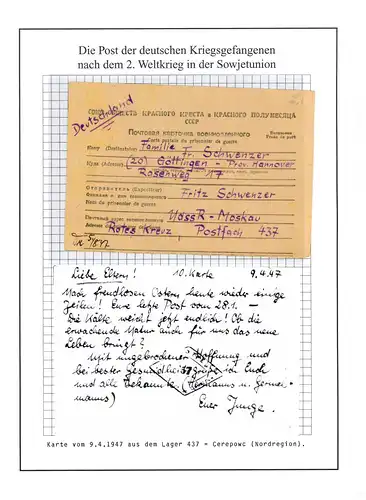 Die Post der deutschen Kriegsgefangenen
nach dem 2. Weltkrieg in der Sowjetunion
Deutschland
СОЮЗ ОБЩЕСТВ КРАСНОГО КРЕСТА и КРАСНОГО ПОЛУМЕСЯЦА
СССР
Почтовая карточка военнопленного
Carte postale du prisonnier de guerre
Кому (Destinataire) Familie Fr. Schwenzer
Куда (Adresse) (20) Göttingen - Prov. Hannover
Rosenweg 17
Отправитель (Expéditeur)
Фамилия и имя военнопленного Fritz Schwenzer
Nom du prisonnier de guerre
Почтовый адрес военнопленного UdSSR - Moskau
Rotes Kreuz Postfach 437
Liebe Eltern! 10. Karte 9.4.47
Nach freudlosen Ostern heute wieder einige
Zeilen! Eure letzte Post vom 28.1. -
Die Kälte weicht jetzt endlich! Ob die
erwachende Natur auch für uns das neue
Leben bringt?
Mit ungebrochener Hoffnung und
bei bester Gesundheit grüße ich Euch
und alle Bekannte (Hermanns u. Germer-
manns)
Euer Junge.
Karte vom 9.4.1947 aus dem Lager 437 = Cerepowc (Nordregion).